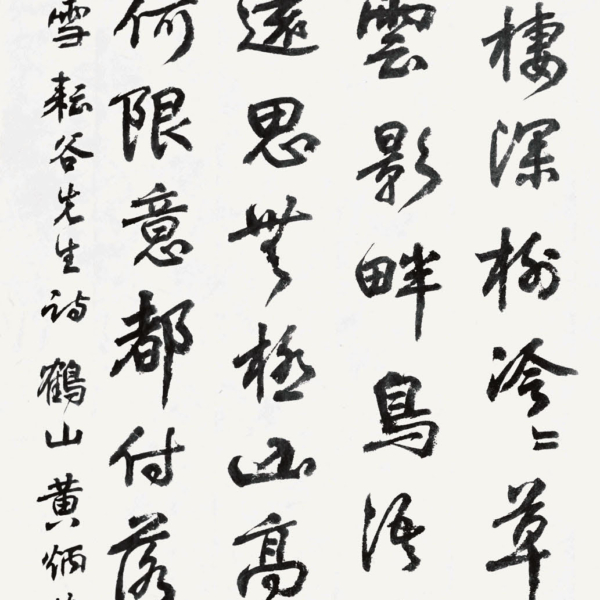 棲深樹泠〻草
雲影畔鳥語
遠思無極高
何限意都付落
雪耘谷先生詩鶴山黃炳